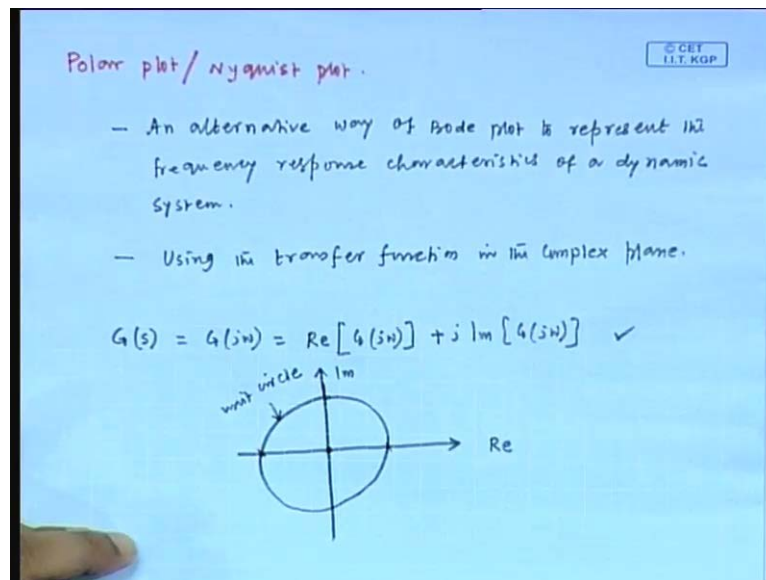 Polar plot / Nyquist plot.
© CET
I.I.T. KGP
– An alternative way of Bode plot to represent the
frequency response characteristics of a dynamic
system.
– Using the transfer function in the complex plane.
G(s) = G(jω) = Re[G(jω)] + j Im[G(jω)] ✓
unit circle
Im
Re